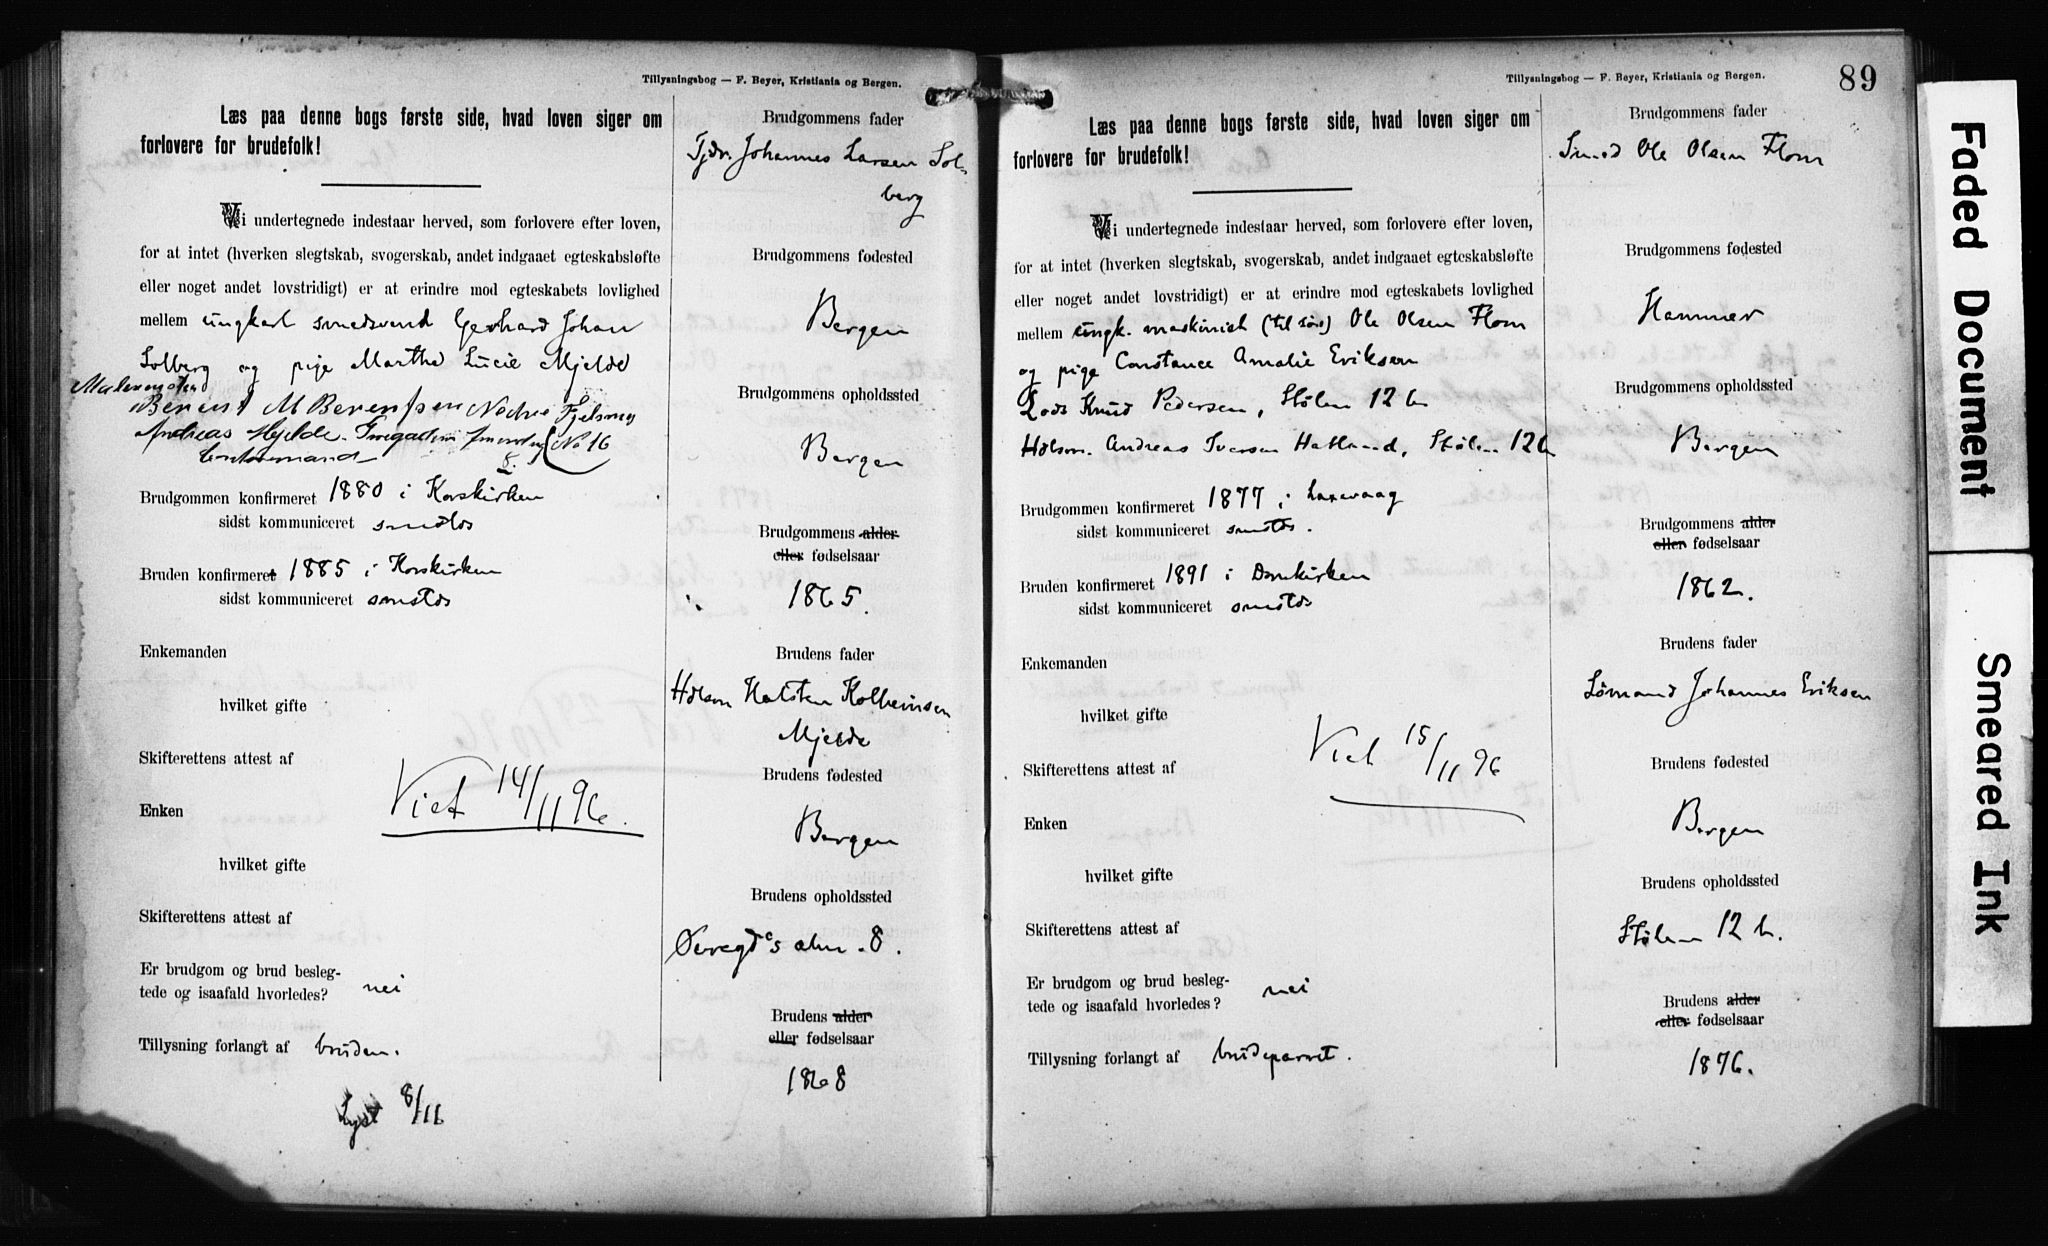 Tillysningsbog — F. Beyer, Kristiania og Bergen.
Læs paa denne bogs første side, hvad loven siger om
forlovere for brudefolk!
Vi undertegnede indestaar herved, som forlovere efter loven,
for at intet (hverken slegtskab, svogerskab, andet indgaaet egteskabsløfte
eller noget andet lovstridigt) er at erindre mod egteskabets lovlighed
mellem ungkarl smedsvend Gerhard Johan
Solberg og pige Marthe Lucie Mjelde
Berent M Berentsen Nedre Fjelsmug
Andreas Mjelde No 16
8.
Brudgommen konfirmeret 1880 i Korskirken
sidst kommuniceret smstds
Bruden konfirmeret 1885 i Korskirken
sidst kommuniceret smstds
Enkemanden
hvilket gifte
Skifterettens attest af
Viet 14/11 96.
Enken
hvilket gifte
Skifterettens attest af
Er brudgom og brud besleg-
tede og isaafald hvorledes? nei
Tillysning forlangt af bruden.
Lyst 8/11
Brudgommens fader
Johannes Larsen Sol-
berg
Brudgommens fødested
Bergen
Brudgommens opholdssted
Bergen
Brudgommens alder
eller fødselsaar
1865.
Brudens fader
Hølsm Halsten Kolbeinsen
Mjelde
Brudens fødested
Bergen
Brudens opholdssted
Øvregd's alm. 8.
Brudens alder
eller fødselsaar
1868
Tillysningsbog — F. Beyer, Kristiania og Bergen.
89
Læs paa denne bogs første side, hvad loven siger om
forlovere for brudefolk!
Vi undertegnede indestaar herved, som forlovere efter loven,
for at intet (hverken slegtskab, svogerskab, andet indgaaet egteskabsløfte
eller noget andet lovstridigt) er at erindre mod egteskabets lovlighed
mellem ungk. maskinist (til søs) Ole Olsen Flom
og pige Constance Amalie Eriksen
Lods Knud Pedersen, Stølen 12 b
Hølsm. Andreas Iversen Hatland, Stølen 12 b
Brudgommen konfirmeret 1877 i Laxevaag
sidst kommuniceret smstds.
Bruden konfirmeret 1891 i Domkirken
sidst kommuniceret smstds
Enkemanden
hvilket gifte
Skifterettens attest af
Viet 15/11 96
Enken
hvilket gifte
Skifterettens attest af
Er brudgom og brud besleg-
tede og isaafald hvorledes? nei
Tillysning forlangt af brudeparret.
Brudgommens fader
Smed Ole Olsen Flom
Brudgommens fødested
Hammer
Brudgommens opholdssted
Bergen
Brudgommens alder
eller fødselsaar
1862.
Brudens fader
Sømand Johannes Eriksen
Brudens fødested
Bergen
Brudens opholdssted
Stølen 12 b.
Brudens alder
eller fødselsaar
1876.
Faded Document
Smeared Ink